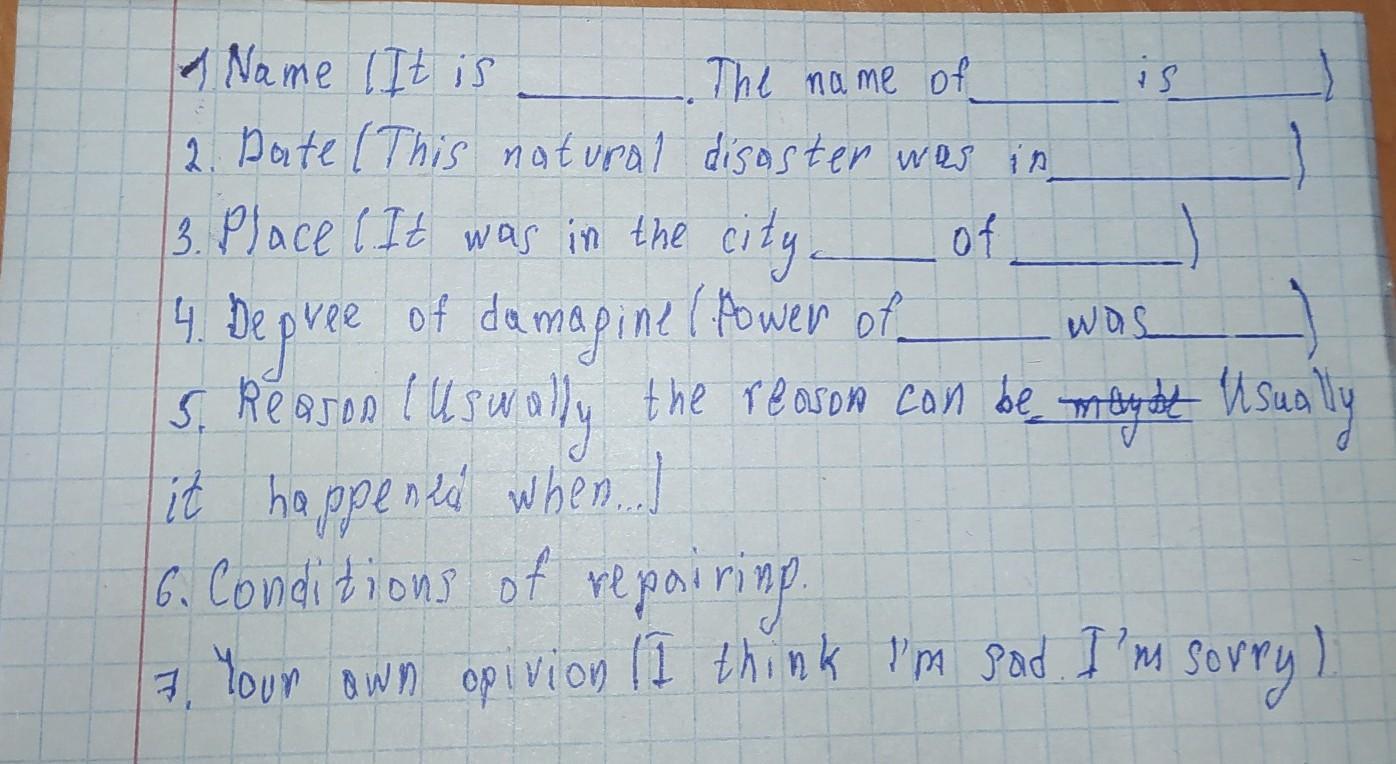 1. Name (It is ______. The name of ______ is ______)
2. Date (This natural disaster was in ______)
3. Place (It was in the city ______ of ______)
4. Degree of damagine (Power of ______ was ______)
5. Reason (Uswally the reason can be maybe Usually
it happened when...)
6. Conditions of repairing.
7. Your own opivion (I think I'm sad. I'm sorry).